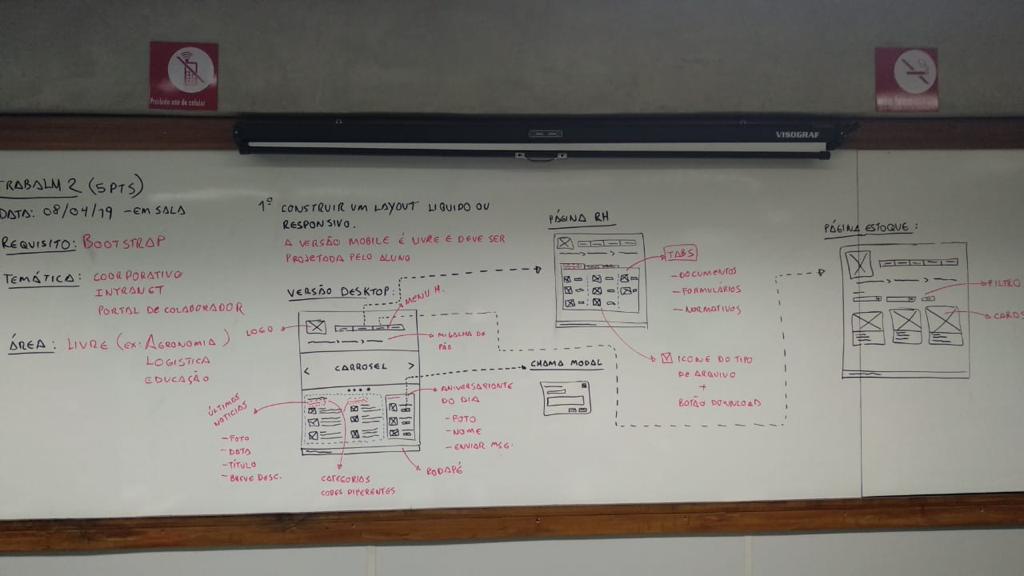 Proibido uso de celular
VISOGRAF
TRABALM 2 (5 PTS)
DATA: 08/04/19 - EM SALA
REQUISITO: BOOTSTRAP
TEMÁTICA: COORPORATIVO
INTRANET
PORTAL DE COLABORADOR
ÁREA: LIVRE (EX: AGRONOMIA)
LOGISTICA
EDUCAÇÃO
1º CONSTRUIR UM LAYOUT LIQUIDO OU
RESPONSIVO.
A VERSÃO MOBILE É LIVRE E DEVE SER
PROJETADA PELO ALUNO
VERSÃO DESKTOP:
MENU H.
LOGO
MIGALHA DE
PÃO
< CARROSEL >
ÚLTIMAS
NOTICIAS
- FOTO
- DATA
- TÍTULO
- BREVE DESC.
CATEGORIAS
CORES DIFERENTES
RODAPÉ
ANIVERSARIANTE
DO DIA
- FOTO
- NOME
- ENVIAR MSG.
CHAMA MODAL
PÁGINA RH
TABS
- DOCUMENTOS
- FORMULÁRIOS
- NORMATIVOS
ICONE DO TIPO
DE ARQUIVO
+
BOTÃO DOWNLOAD
PÁGINA ESTOQUE:
FILTRO
CARDS